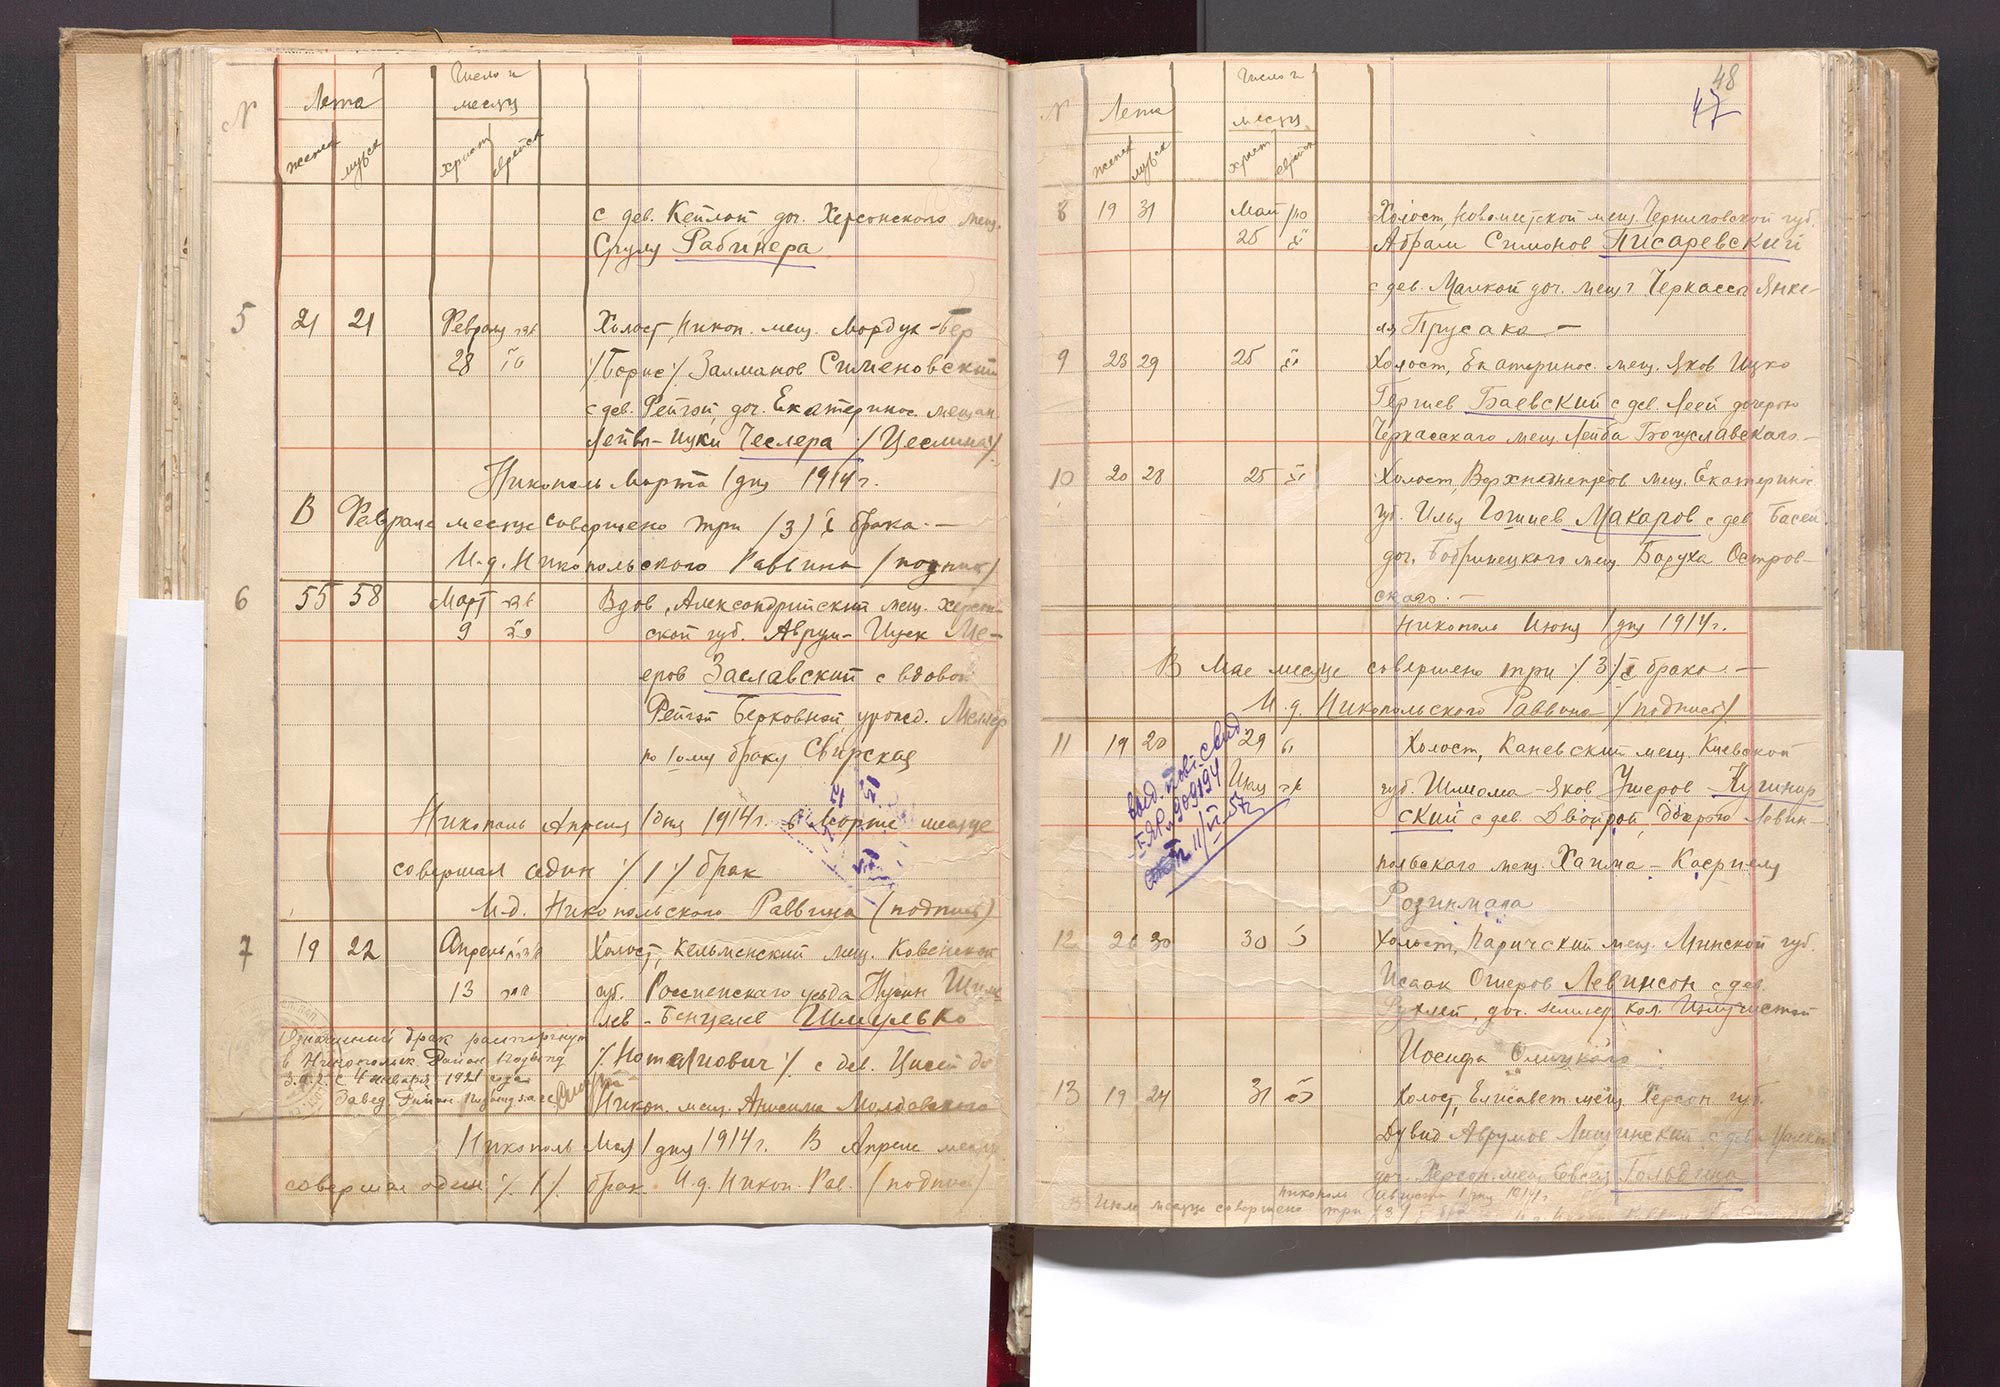 N Лета Число и месяц
женск мужск христ еврейск
с дев. Кейлой доч. Херсонского мещ.
Сруля Рабинера
5 21 21 Февраля Холост, Никоп. мещ. Мордух-Бер
28 /Борис/ Залманов Сименовский
с дев. Рейзой, доч. Екатеринос. мещан
Лейбы-Ицки Чеслера /Цеслина/
Никополь Марта 1 дня 1914 г.
В Феврале месяце совершено три /3/ брака.—
И.д. Никопольского Раввина /подпись/
6 55 58 Март Вдов, Александрийский мещ. Херсон-
9 ской губ. Аврум-Ицек Ме-
еров Заславский с вдовой
Рейзой Берковной урожд. Меллер
по 1ому браку Свирская
Никополь Апреля 1 дня 1914 г. в Марте месяце
совершал один /1/ брак
И.д. Никопольского Раввина (подпись)
7 19 22 Апрель Холост, Кельменский мещ. Ковенской
13 губ. Россиенского уезда Нухим
лев-Бенцелев Шмулько
Означенный брак расторгнут
в Никопольск. Район. Подотд
З.А.Г.С 4 января 1921 года
Завед. Район. Подотд З.А.Г.С.
/Нотанович/ с дев. Цисей до
Никоп. мещ. Анисима Молдавского
Никополь Мая 1 дня 1914 г. В Апреле месяце
совершал один /1/ брак И.д. Никоп. Рав. (подпись)
48
47
N Лета Число и месяц
женск мужск христ еврейск
8 19 31 Май Холост, Новомест́ской мещ. Черниговской губ.
25 Абрам Симонов Писаревский
с дев. Малкой доч. мещ г Черкассы Янке-
ля Прусака —
9 23 29 25 Холост, Екатеринос. мещ. Яков Ицко
Гершев Баевский с дев. Леей дочерью
Черкасского мещ. Лейба Богуславского.—
10 20 28 25 Холост, Верхнеднепров мещ. Екатеринос.
губ. Илья Гошиев Макаров с дев Басей
доч. Бобринецкого мещ Баруха Остров-
ского.—
Никополь Июня 1 дня 1914 г.
В Мае месяце совершено три /3/ брака.—
И.д. Никопольского Раввина /подпись/
11 19 20 29 Холост, Каневский мещ. Киевской
Июля губ. Шлиома-Яков Ушеров Кушнир
ский с дев. Двойрой, дочерью Левин-
польского мещ. Хаима-Касриеля
выд. повт. свид
1-ЯР № 909194
12 26 30 30 Холост, Паричский мещ. Минской губ.
Исаак Ошеров Левинсон с дев.
Рухлей, доч. землед. кол. Излучистой
Иосифа Олицкого
13 19 24 31 Холост, Елисавет мещ. Херсон губ.
Дувид Аврумов Лишинский с дев.
доч. Херсон. мещ. Евсея Гольдина
Никополь Августа 1 дня 1914 г.
В Июле месяце совершено три /3/